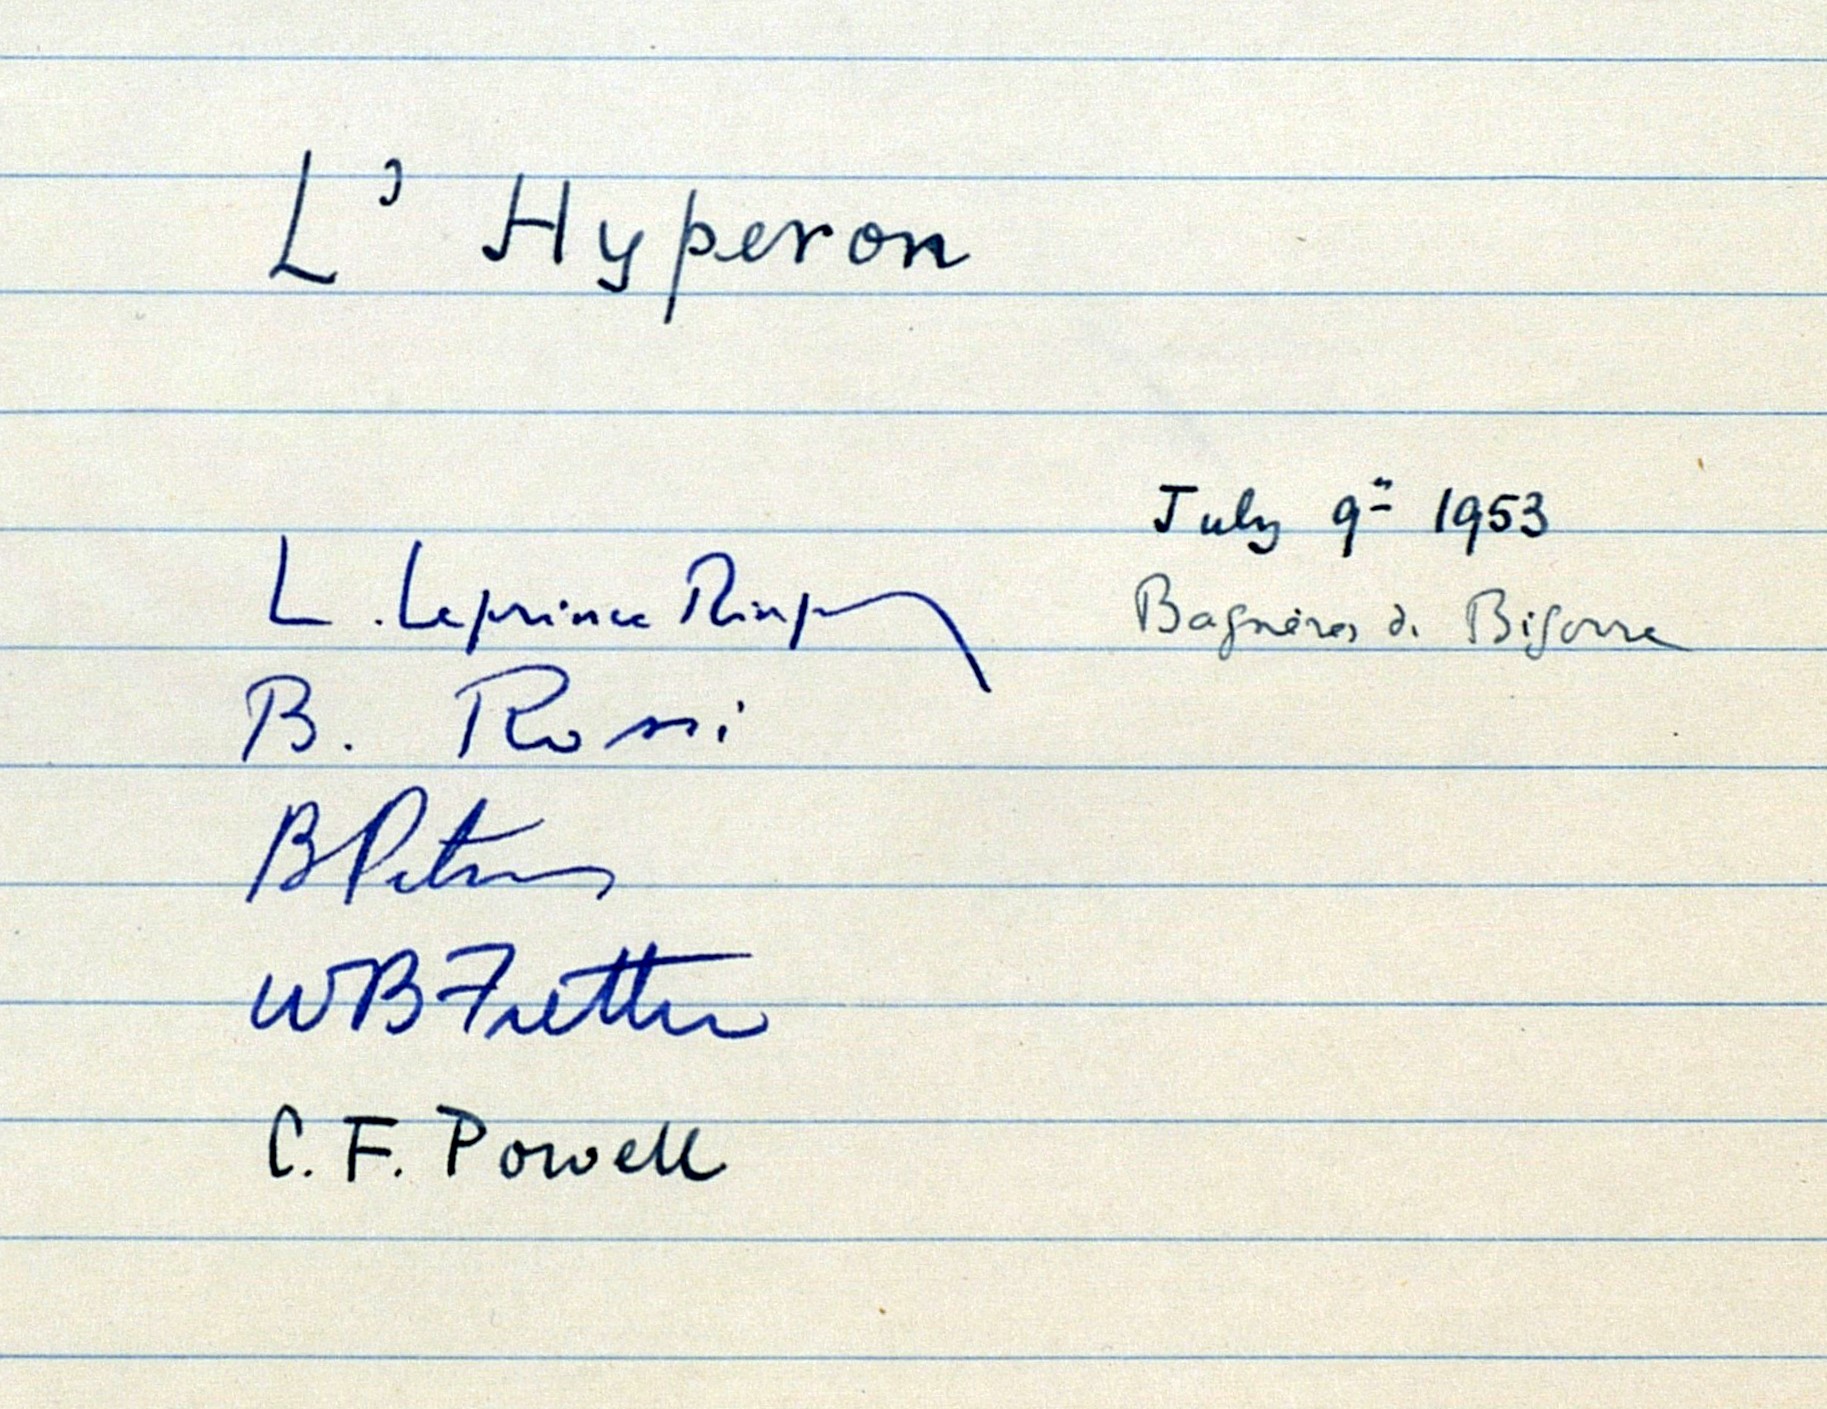 L' Hyperon
July 9th 1953
L. Leprince Ringuet
Bagnères de Bigorre
B. Rossi
B Peters
W B Fretter
C. F. Powell